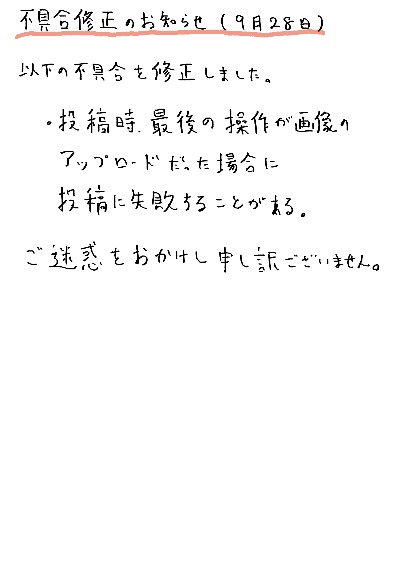 不具合修正のお知らせ(9月28日)
以下の不具合を修正しました。
・投稿時、最後の操作が画像の
アップロードだった場合に
投稿に失敗することがある。
ご迷惑をおかけし申し訳ございません。